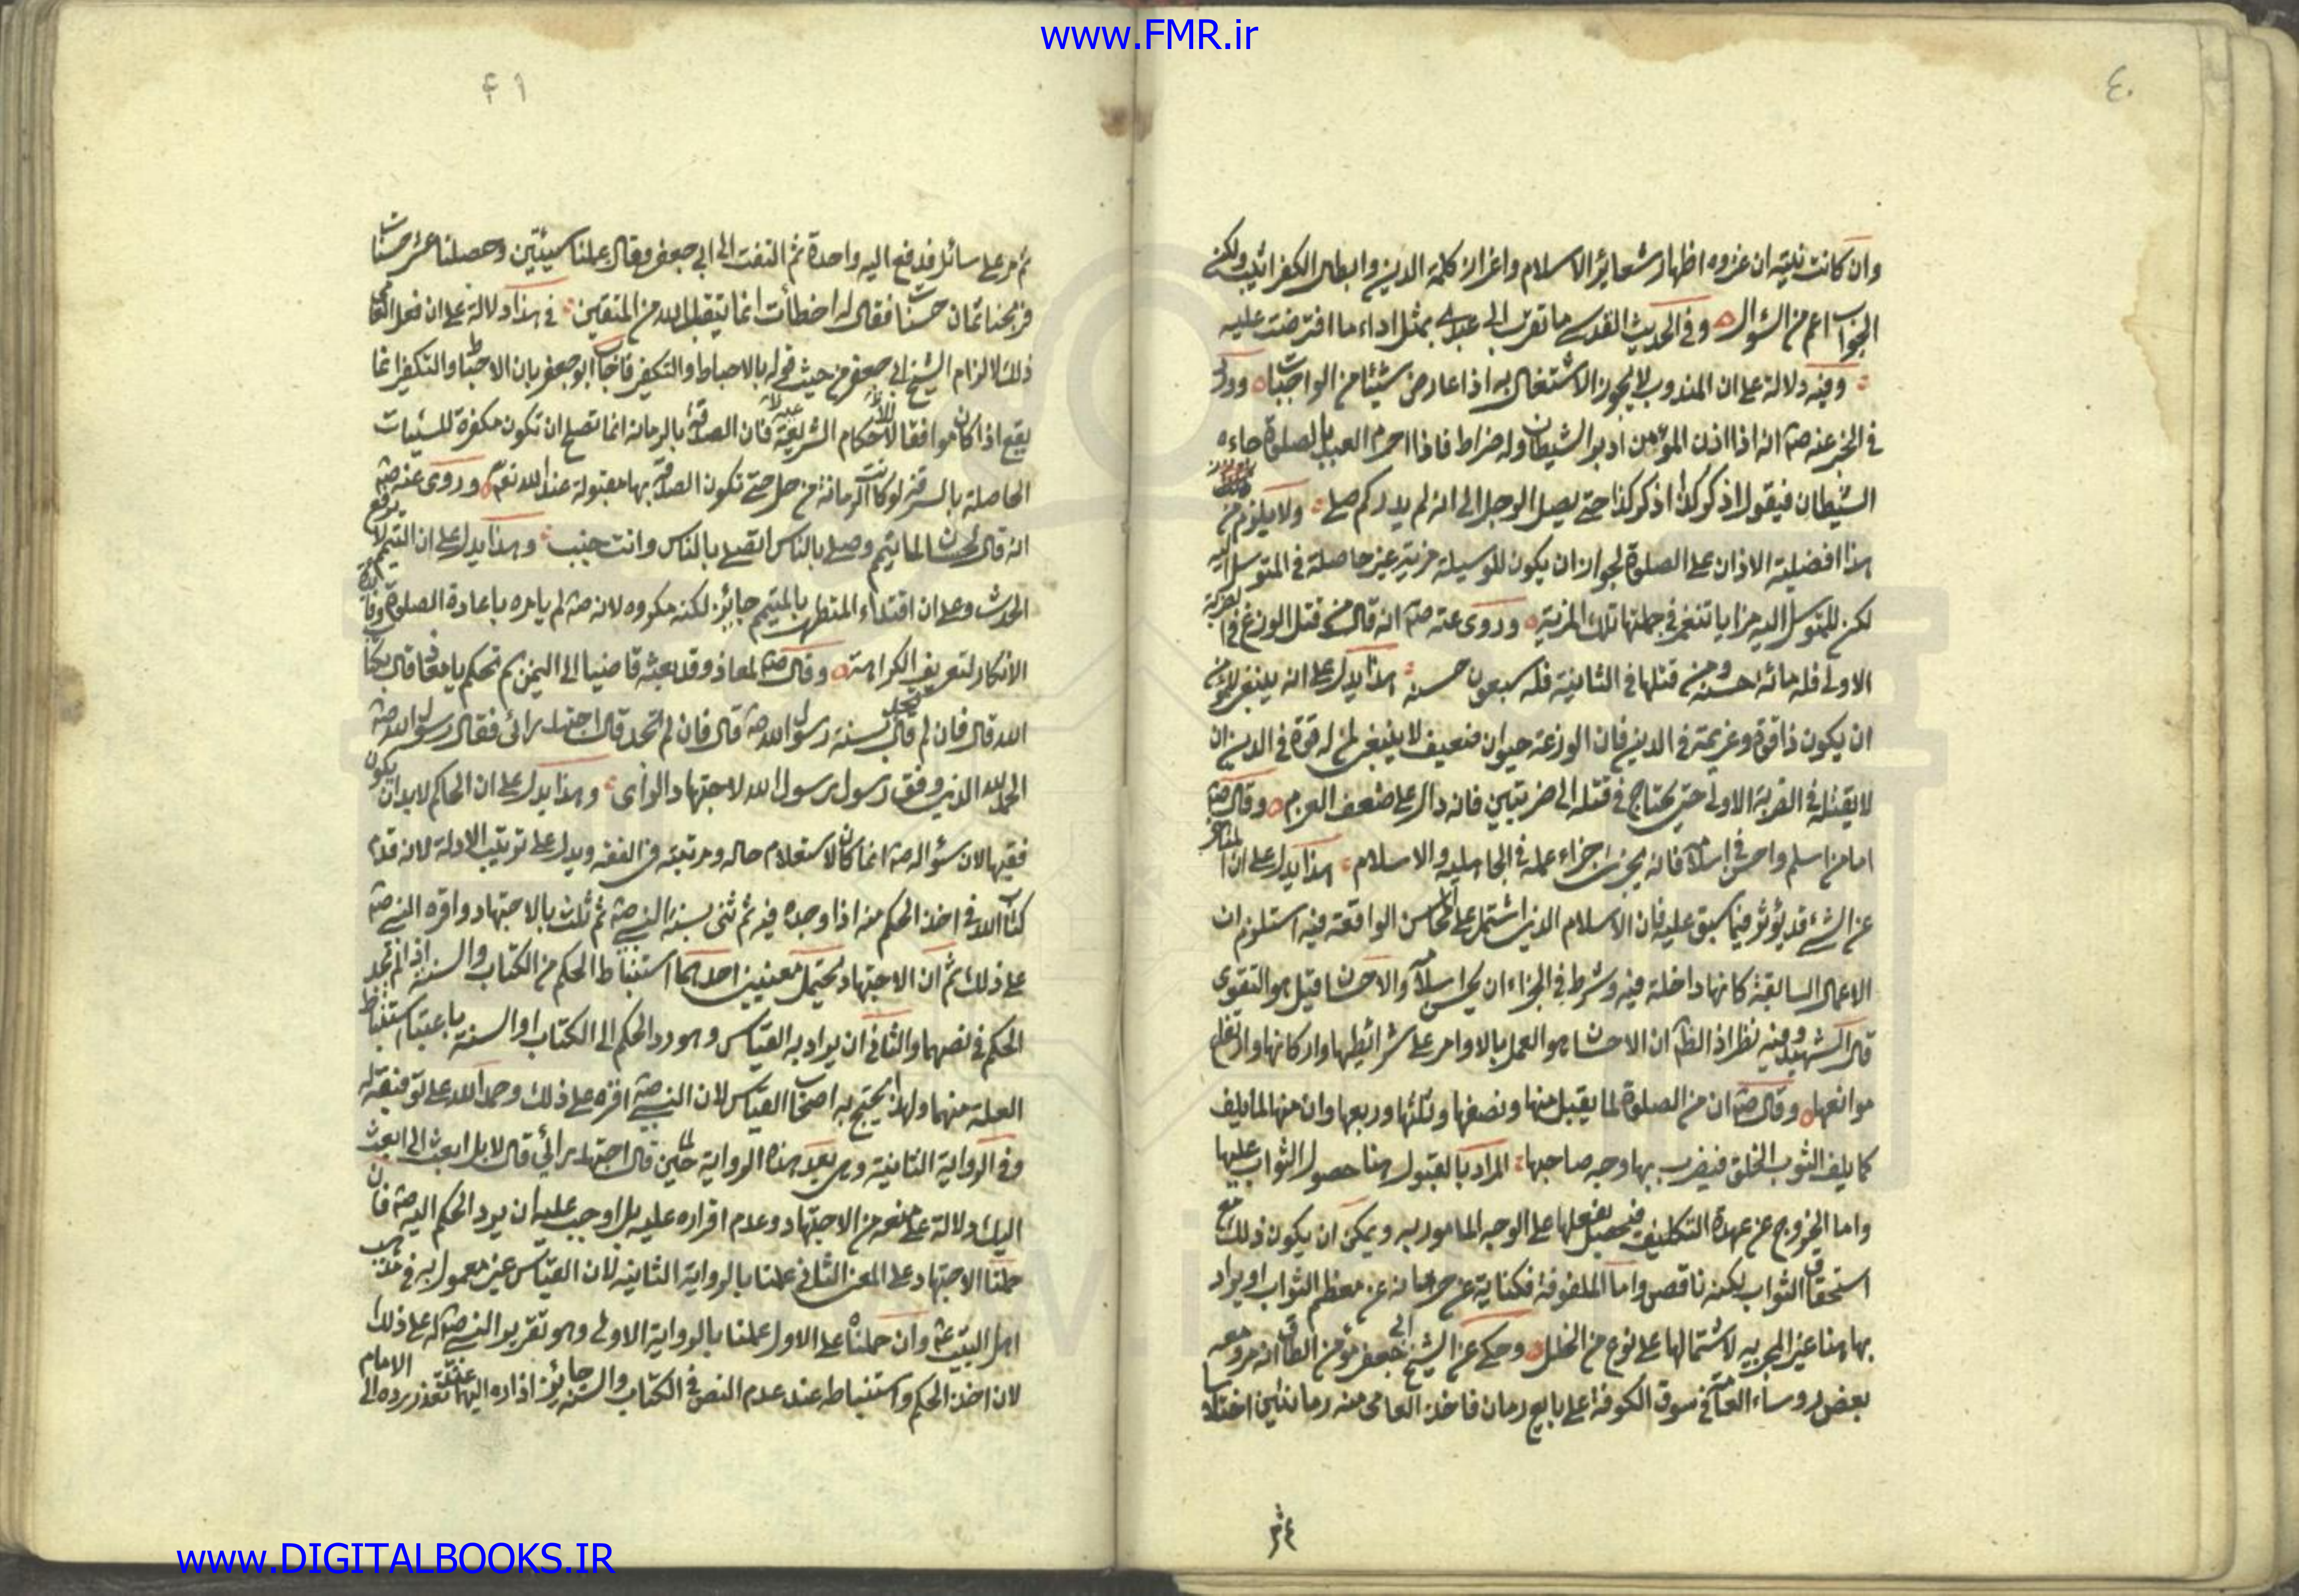 www.FMR.ir
٤٠
وان كانت نيته ان غزوه اظهار شعاير الاسلام واعزاز كلمة الدين وابطال الكفر اثيب ولكن
الجواب اعم من السؤال وفى الحديث القدسى ما تقرب الى عبدى بمثل اداء ما افترضت عليه
وفيه دلالة على ان المندوب لا يجوز الاشتغال به اذا عارض شيئا من الواجبات وورد
فى الخبر عنه صم انه اذا اذن المؤذن ادبر الشيطان وله ضراط فاذا احرم العبد بالصلوة جاءه
الشيطان فيقول اذكر كذا اذكر كذا حتى يصل الرجل الى انه لم يدر كم صلى ولا يلزم من
هذا افضلية الاذان على الصلوة لجواز ان يكون للوسيلة مزية غير حاصلة فى المتوسل اليه
لكن للمتوسل اليه مزايا تنغمر فى جملتها تلك المزية وروى عنه صم انه قال من قتل الوزغ فى الضربة
الاولى فله مائة حسنة ومن قتلها فى الثانية فله سبعون حسنة هذا يدل على انه ينبغى للمؤمن
ان يكون ذا قوة وعزيمة فى الدين فان الوزغة حيوان ضعيف لا ينبغى لمن له قوة فى الدين ان
لا يقتله فى الضربة الاولى حتى يحتاج فى قتله الى ضربتين فانه دال على ضعف العزم وقال صم
اما من اسلم واحسن فى اسلامه فانه يجزى جزاء عمله فى الجاهلية والاسلام هذا يدل على ان المتاخر
عن الشىء قد يؤثر فيما سبق عليه فان الاسلام الذى اشتمل على المحاسن الواقعة فيه استلزم ان
الاعمال السابقة كانها داخلة فيه وشرط فى الجزاء ان يحسن اسلامه والاحسان قيل هو التقوى
قال الشهيد وفيه نظر اذ الظ ان الاحسان هو العمل بالاوامر على شرائطها واركانها وارتفاع
موانعها وقال صم ان من الصلوة لما يقبل منها ونصفها وثلثها وربعها وان منها لما يلف
كما يلف الثوب الخلق فيضرب بها وجه صاحبها المراد بالقبول هنا حصول الثواب عليها
واما الخروج عن عهدة التكليف فيحصل بفعلها على الوجه المامور به ويمكن ان يكون ذلك مع
استحقاق الثواب لكنه ناقص واما الملفوفة فكناية عن حرمانه عن معظم الثواب او يراد
بها هنا غير المجزيه لاشتمالها على نوع من الخلل وحكى عن الشيخ ابى جعفر مؤمن الطاق انه مر ومعه
بعض روساء العامة فى سوق الكوفة على بايع رمان فاخذ العامى منه رمانتين اختلاسا
٤١
ثم مر على سائل فدفع اليه واحدة ثم التفت الى ابى جعفر وقال عملنا سيئتين وحصلنا عشر حسنات
فربحنا ثمان حسنات فقال له اخطأت انما يتقبل الله من المتقين فى هذا دلالة على ان فعل العامى
ذلك لالزام الشيخ ابى جعفر من حيث قوله بالاحباط والتكفير فاجاب ابو جعفر بان الاحباط والتكفير انما
يقع اذا كان موافقا للاحكام الشرعية فان الصدقة بالرمانة انما تصلح ان تكون مكفرة للسيئات
الحاصلة بالسرقة لو كانت الرمانة من حل حتى تكون الصدقة بها مقبولة عند الله تعم وروى عنه صم
انه قال لحسان لما تيمم وصلى بالناس اتصلى بالناس وانت جنب وهذا يدل على ان التيمم لا يرفع
الحدث وعلى ان اقتداء المتطهر بالمتيمم جايز لكنه مكروه لانه صم لم يامره باعادة الصلوة
الانكار لتعريف الكراهة وقال صم لمعاذ وقد بعثه قاضيا الى اليمن بم تحكم يا معاذ قال بكتاب
الله قال فان لم تجد قال بسنة رسول الله صم قال فان لم تجد قال اجتهد برائى فقال رسول الله صم
الحمد لله الذى وفق رسول رسول الله لاجتهاد الرأى وهذا يدل على ان الحاكم لا بد ان يكون
فقيها لان سؤاله صم انما كان لاستعلام حاله ومرتبته فى الفقه ويدل على ترتيب الادلة لانه قدم
كتاب الله فى اخذ الحكم منه اذا وجده فيه ثم ثنى بسنة النبى صم ثم ثلث بالاجتهاد واقره النبى صم
على ذلك ثم ان الاجتهاد يحتمل معنيين احدهما استنباط الحكم من الكتاب والسنة اذا لم تجد
الحكم فى نصهما والثانى ان يراد به القياس وهو رد الحكم الى الكتاب او السنة باعتبار استنباط
العلة منهما ولهذا يحتج به اصحاب القياس لان النبى صم اقره على ذلك وحمد الله على توفيقه له
وفى الرواية الثانية وهى بعد هذه الرواية لما حين قال اجتهد برائى قال لا بل ابعث الى ابعث
اليك دلالة على منعه من الاجتهاد وعدم اقراره عليه بل اوجب عليه ان يرد الحكم اليه صم فان
حملنا الاجتهاد على المعنى الثانى عملنا بالرواية الثانية لان القياس غير معمول به فى مذهب
اهل البيت عم وان حملناه على الاول عملنا بالرواية الاولى وهو تقرير النبى صم له على ذلك
لان اخذ الحكم واستنباطه عند عدم النص فى الكتاب والسنة جايز اذا رده اليهما عند تعذر رده الى الامام
www.DIGITALBOOKS.IR